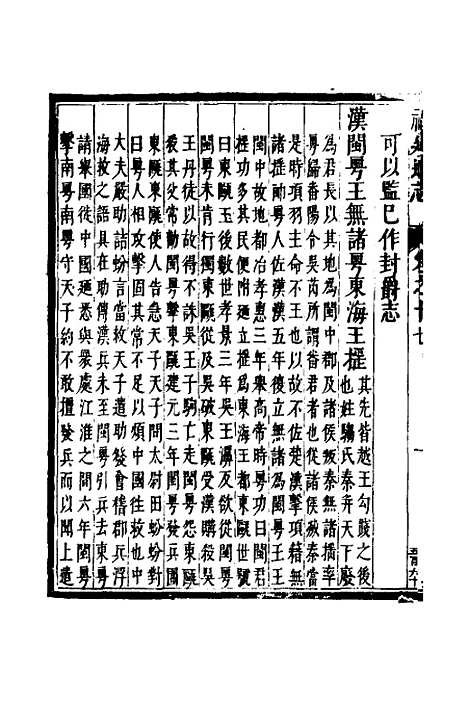 可以監已作封爵志
漢閩粵王無諸粵東海王搖其先皆越王勾踐之後
也姓騶氏秦并天下廢
為君長以其地為閩中郡及諸侯叛秦無諸搖率
粵歸番陽令吳芮所謂番君者也從諸侯滅秦當
是時項羽主命不王也以故不佐楚漢擊項籍無
諸搖帥粵人佐漢漢五年復立無諸為閩粵王王
閩中故地都冶孝惠三年舉高帝時粵功曰閩君
搖功多其民便附廼立搖為東海王都東甌世號
曰東甌王後數世孝景三年吳王濞反欲從閩粵
閩粵未肯行獨東甌從吳及吳破東甌受漢購殺吳
王丹徒以故得不誅吳王子駒亡走閩粵怨東甌
殺其父常勸閩粵擊東甌建元三年閩粵發兵圍
東甌東甌使人告急天子天子問太尉田蚡蚡對
曰粵人相攻擊固其常不足以煩中國往救也中
大夫嚴助詰蚡言當救天子遣助發會稽郡兵浮
海救之語具在助傳漢兵未至閩粵引兵去東粵
請舉國徙中國廼悉與衆處江淮之間六年閩粵
擊南粵南粵守天子約不敢擅發兵而以聞上遣